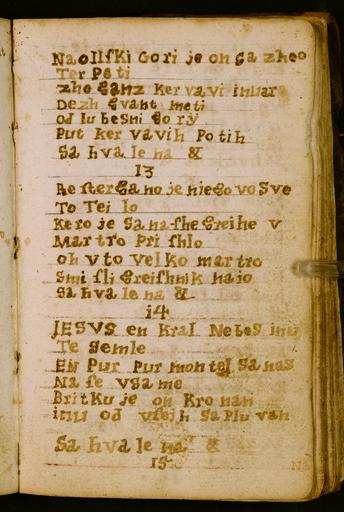 Na oIlſki Gori je on Sa zheo
Ter Pe ti
zhe Ganz Ker va vi inu
Dezh Gvant meti
Od lu be Sni Go ry
Put ker va vih Po tih
Sa hva le na &
13
Re ſter Ga no je nie Go vo Sve
To Tei lo
Ke ro je Sa na ſhe Greihe v
Mar tro Pri ſhlo
oh v to vel ko mar tro
Smi ſli Greiſhnik na jo
Sa hva le na &
14
JESVS en Kral Ne beS inu
Te Semle
EN Pur Pur mon tel Sa nas
Na ſe vSa me
Brit Ku je on Kro nan
inu od vſeih Sa Plu van
Sa hva le na &
15